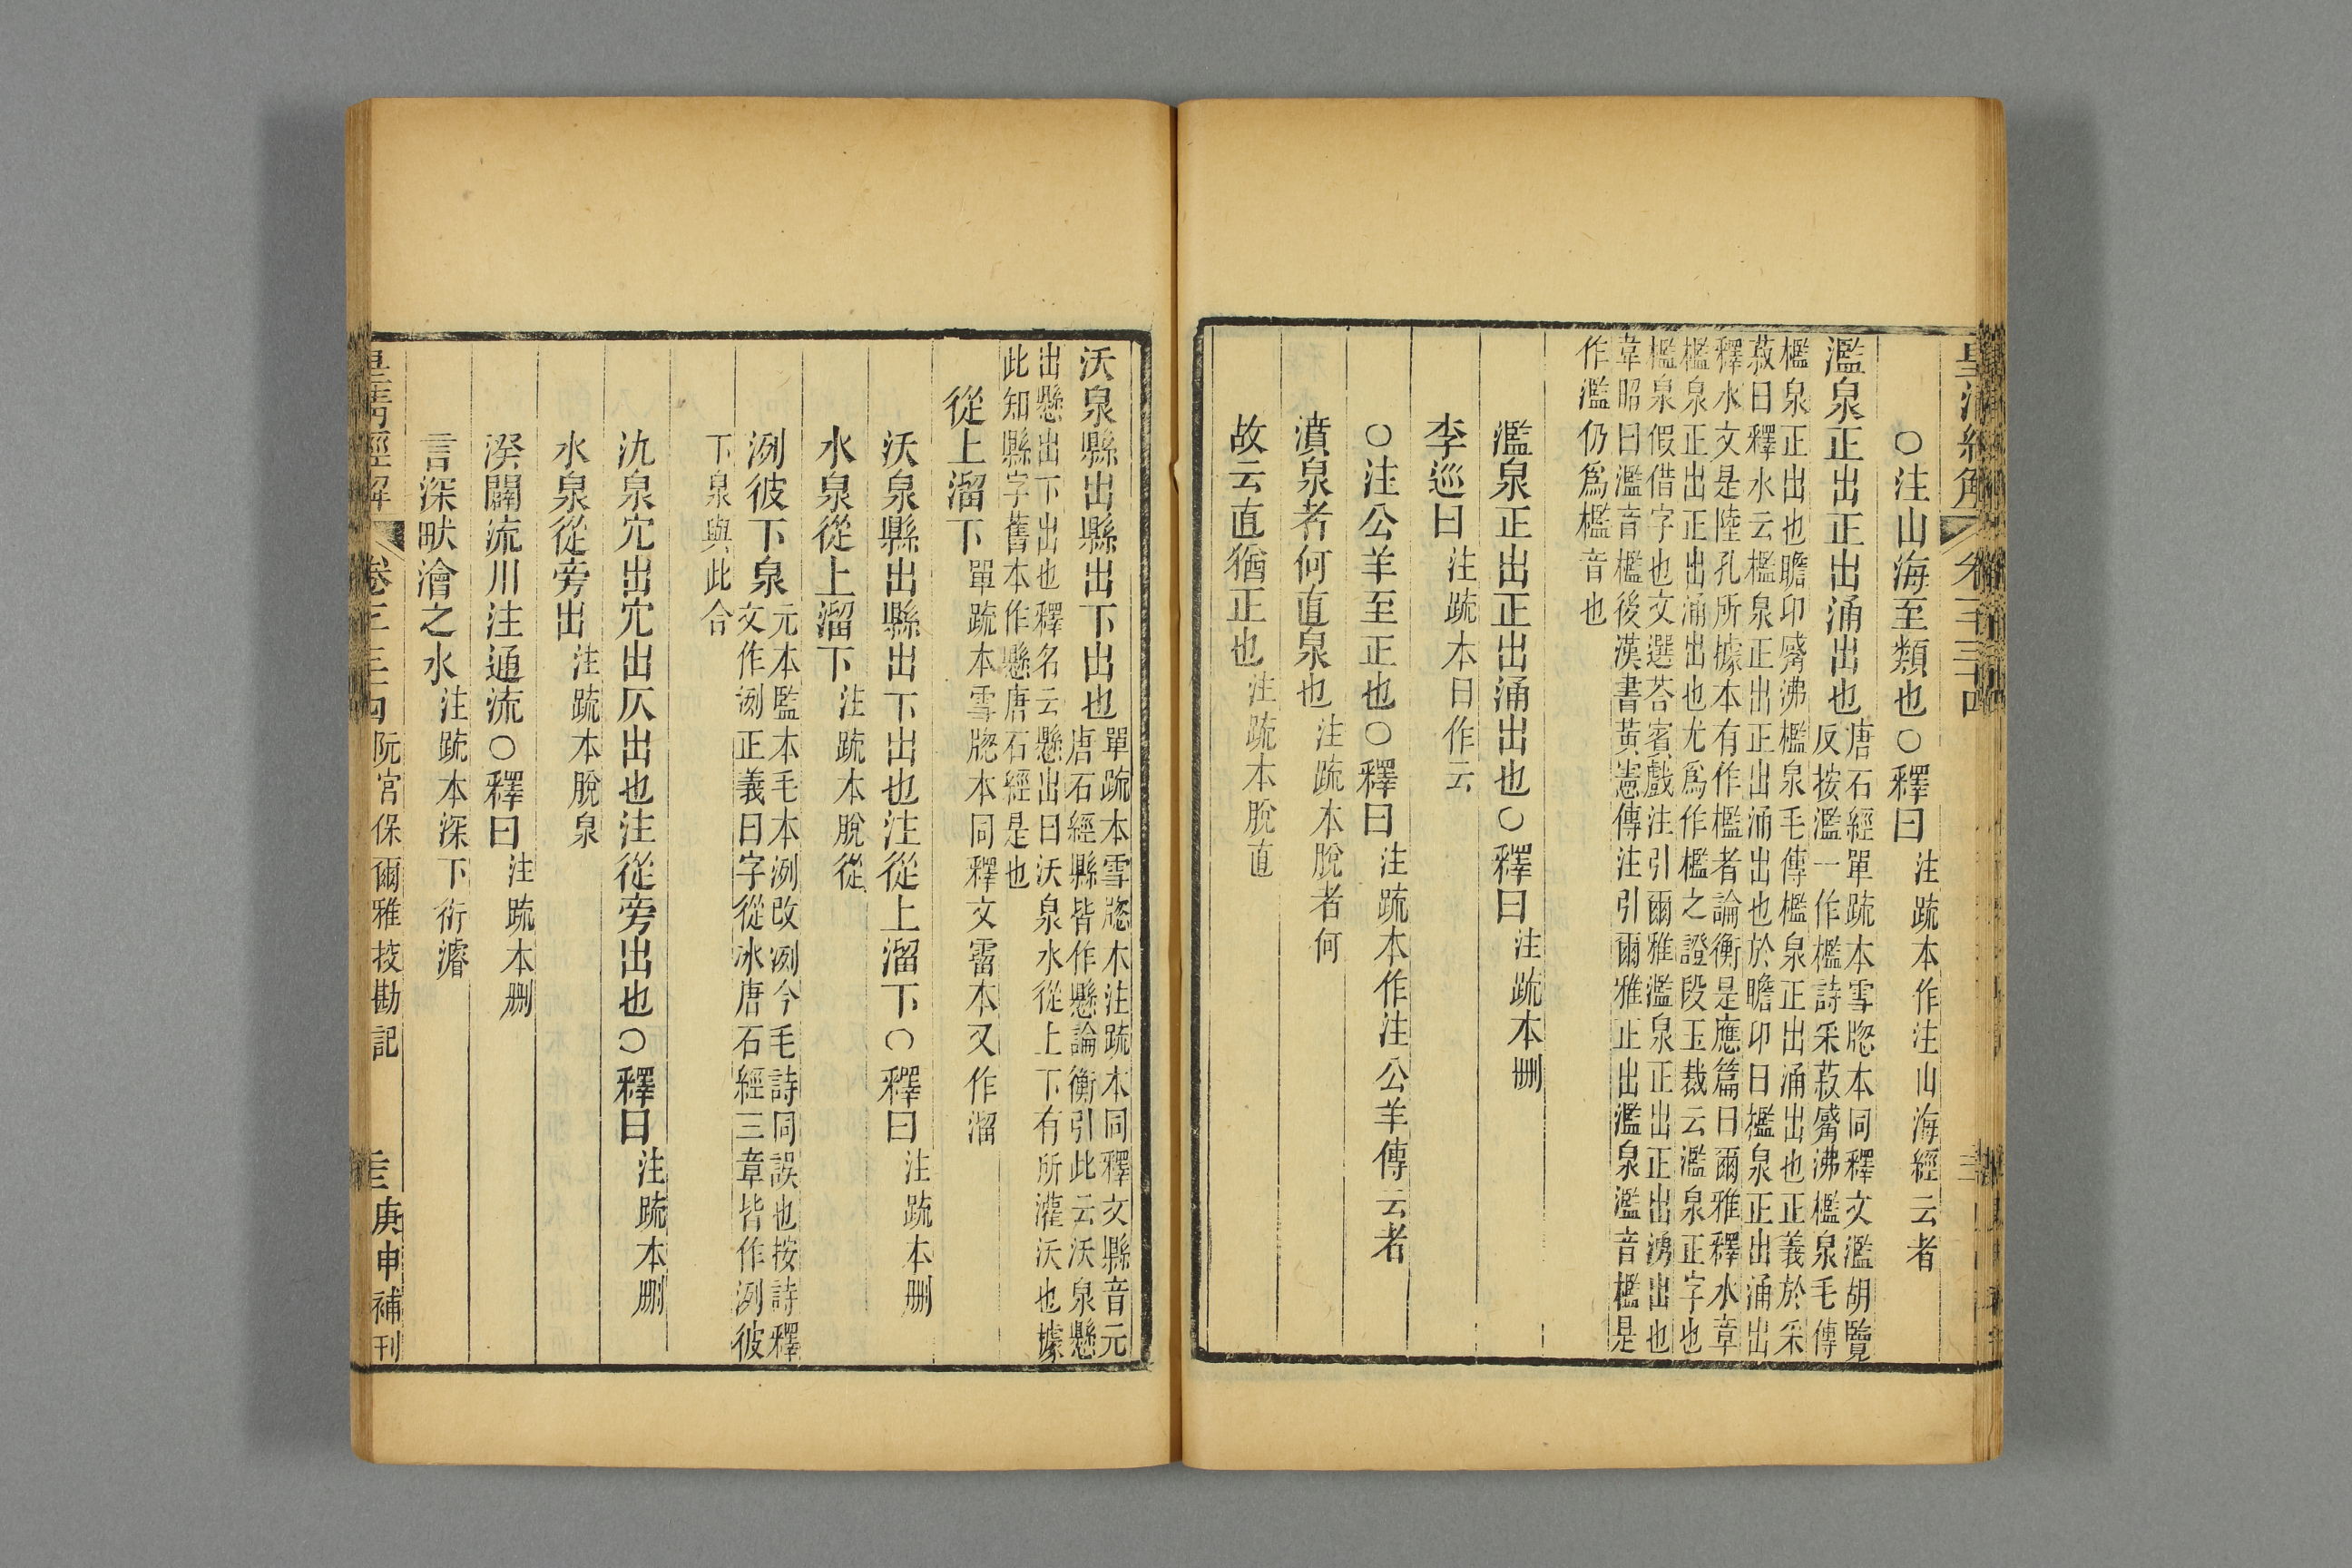 ○注山海至類也○釋曰注疏本作注山海經云者
濫泉正出正出涌出也唐石經單疏本雪牕本同釋文濫胡覽
反按濫一作檻詩采菽觱沸檻泉毛傳
檻泉正出也瞻卬觱沸檻泉毛傳檻泉正出涌出也正義於采
菽曰釋水云檻泉正出正出涌出也於瞻卬曰檻泉正出涌出
釋水文是陸孔所據本有作檻者論衡是應篇曰爾雅釋水章
檻泉正出正出涌出也尤爲作檻之證段玉裁云濫泉正字也
檻泉假借字也文選荅賓戲注引爾雅濫泉正出正出湧出也
韋昭曰濫音檻後漢書黃憲傳注引爾雅正出濫泉濫音檻是
作濫仍爲檻音也
濫泉正出正出涌出也○釋曰注疏本删
李巡曰注疏本曰作云
○注公羊至正也○釋曰注疏本作注公羊傳云者
濆泉者何直泉也注疏本脫者何
故云直猶正也注疏本脫直
沃泉縣出縣出下出也單疏本雪牕本注疏本同釋文縣音元
唐石經縣皆作懸論衡引此云沃泉懸
出懸出下出也釋名云懸出曰沃泉水從上下有所灌沃也據
此知縣字舊本作懸唐石經是也
從上溜下單疏本雪牕本同釋文霤本又作溜
沃泉縣出縣出下出也注從上溜下○釋曰注疏本删
水泉從上溜下注疏本脫從
洌彼下泉元本監本毛本洌改冽今毛詩同誤也按詩釋
文作洌正義曰字從冰唐石經三章皆作洌彼
下泉與此合
氿泉穴出穴出仄出也注從旁出也○釋曰注疏本删
水泉從旁出注疏本脫泉
湀闢流川注通流○釋曰注疏本删
言深畎澮之水注疏本深下衍濬
皇清經解 卷三三四 阮宮保爾雅挍勘記 庚申補刊